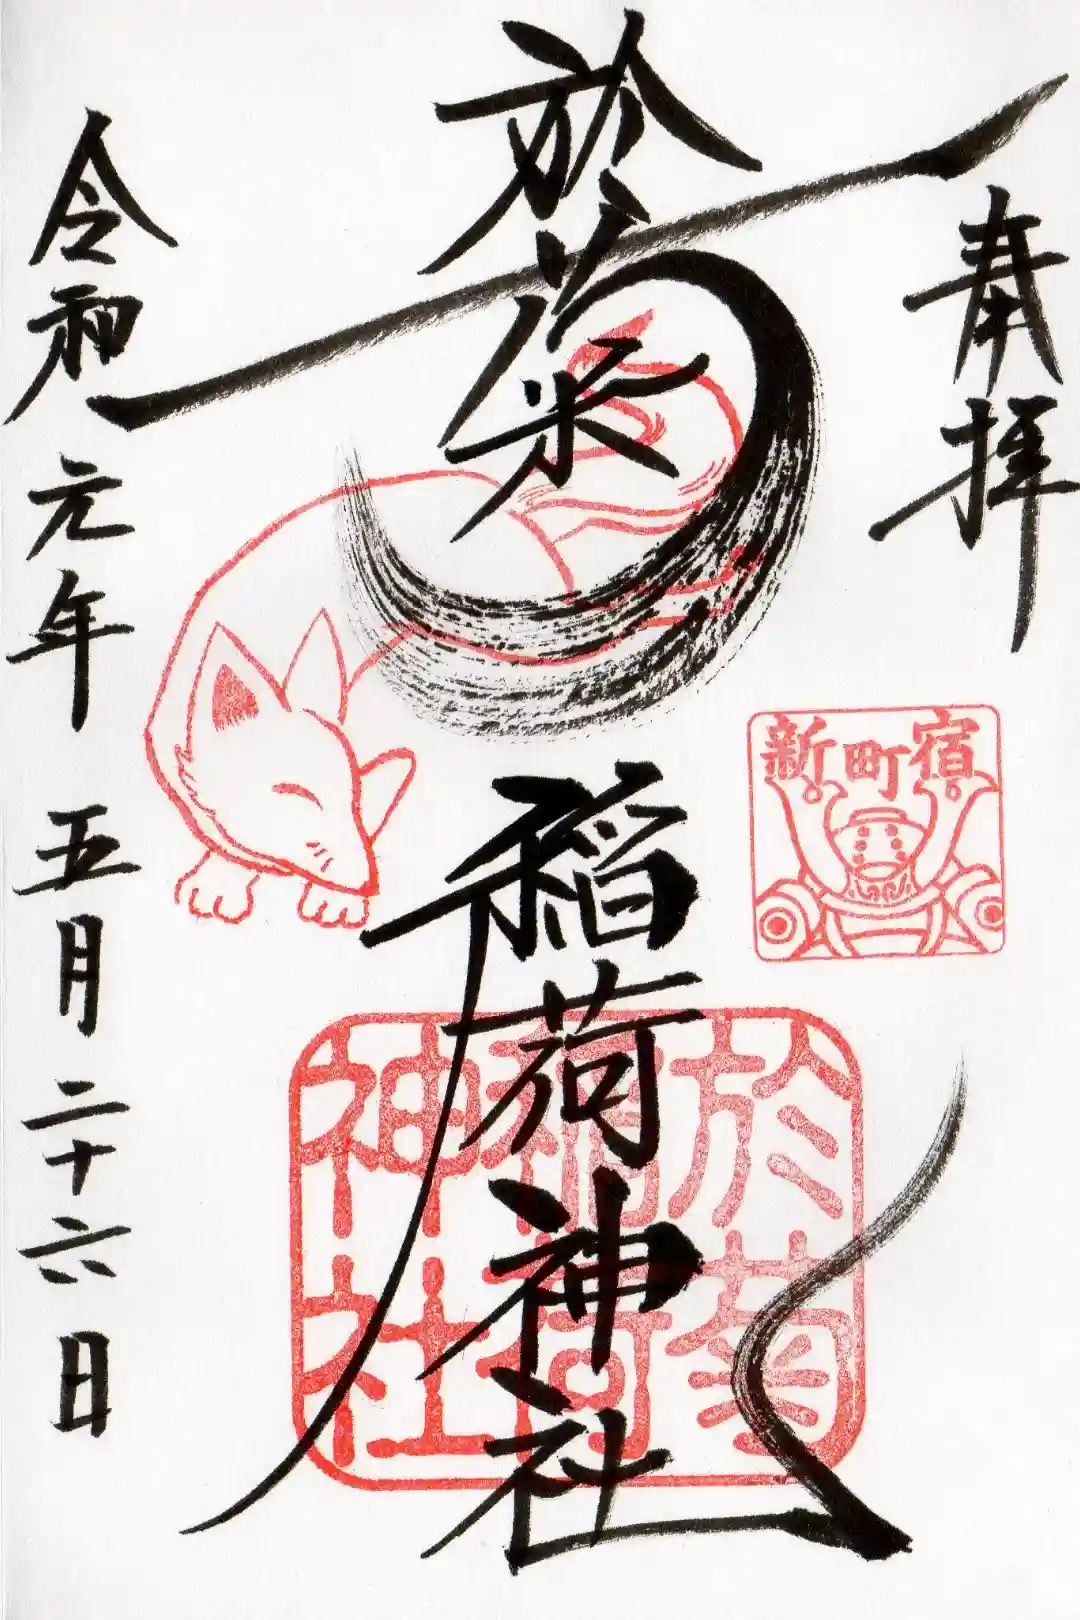 奉拝
於菊
稲荷神社
令和元年 五月二十六日
新町宿
於菊
稲荷
神社